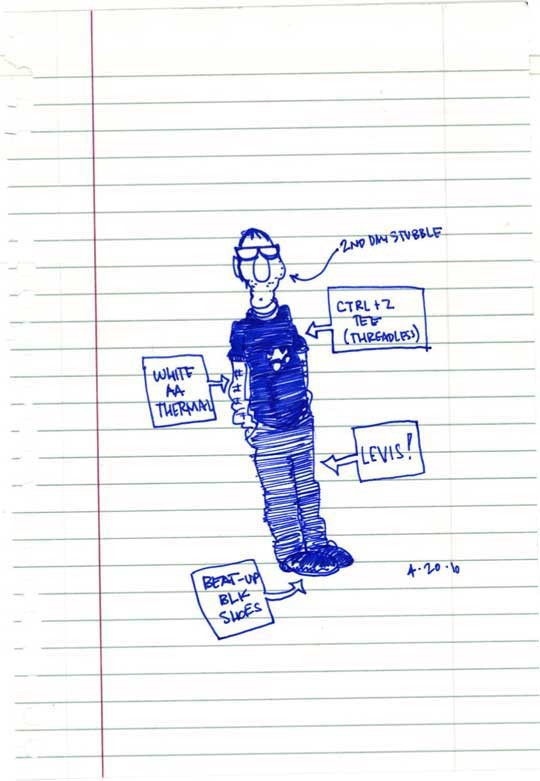 2ND DAY STUBBLE
CTRL+Z
TEE
(THREADLESS)
WHITE
AA
THERMAL
LEVIS!
BEAT-UP
BLK
SHOES
4·20·6